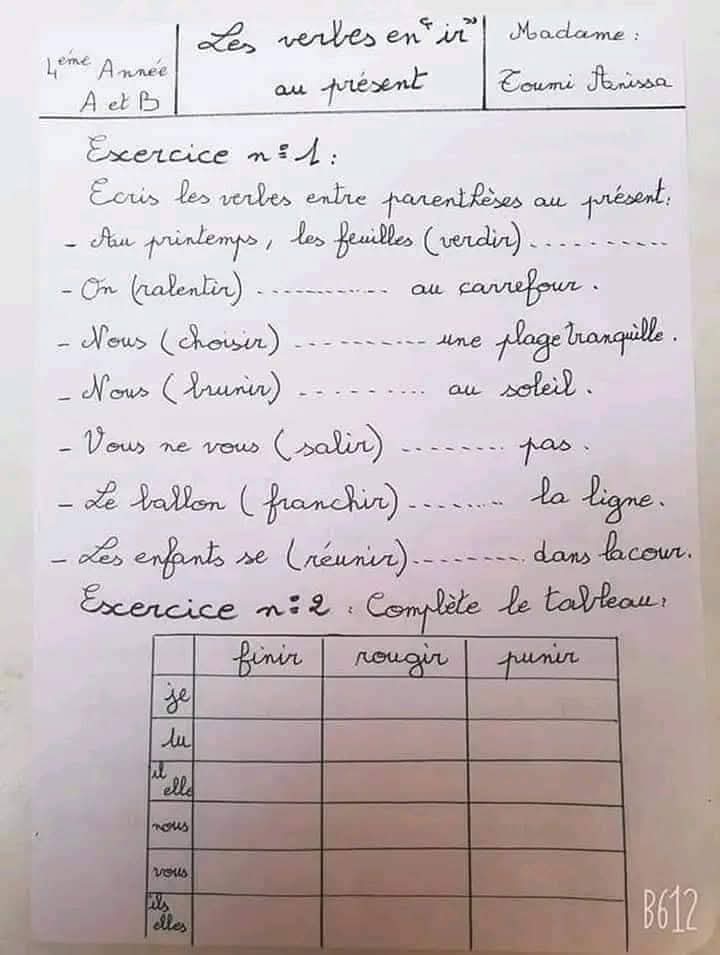 4éme Année
A et B
Les verbes en "ir"
au présent
Madame :
Toumi Anissa
Exercice n° 1 :
Ecris les verbes entre parenthèses au présent :
- Au printemps, les feuilles (verdir) ............
- On (ralentir) ............ au carrefour .
- Nous (choisir) ............ une plage tranquille .
- Nous (brunir) ............ au soleil .
- Vous ne vous (salir) ............ pas .
- Le ballon (franchir) ............ la ligne .
- Les enfants se (réunir) ............ dans la cour .
Exercice n° 2 : Complète le tableau :
finir rougir punir
je
tu
il
elle
nous
vous
ils
elles
B612